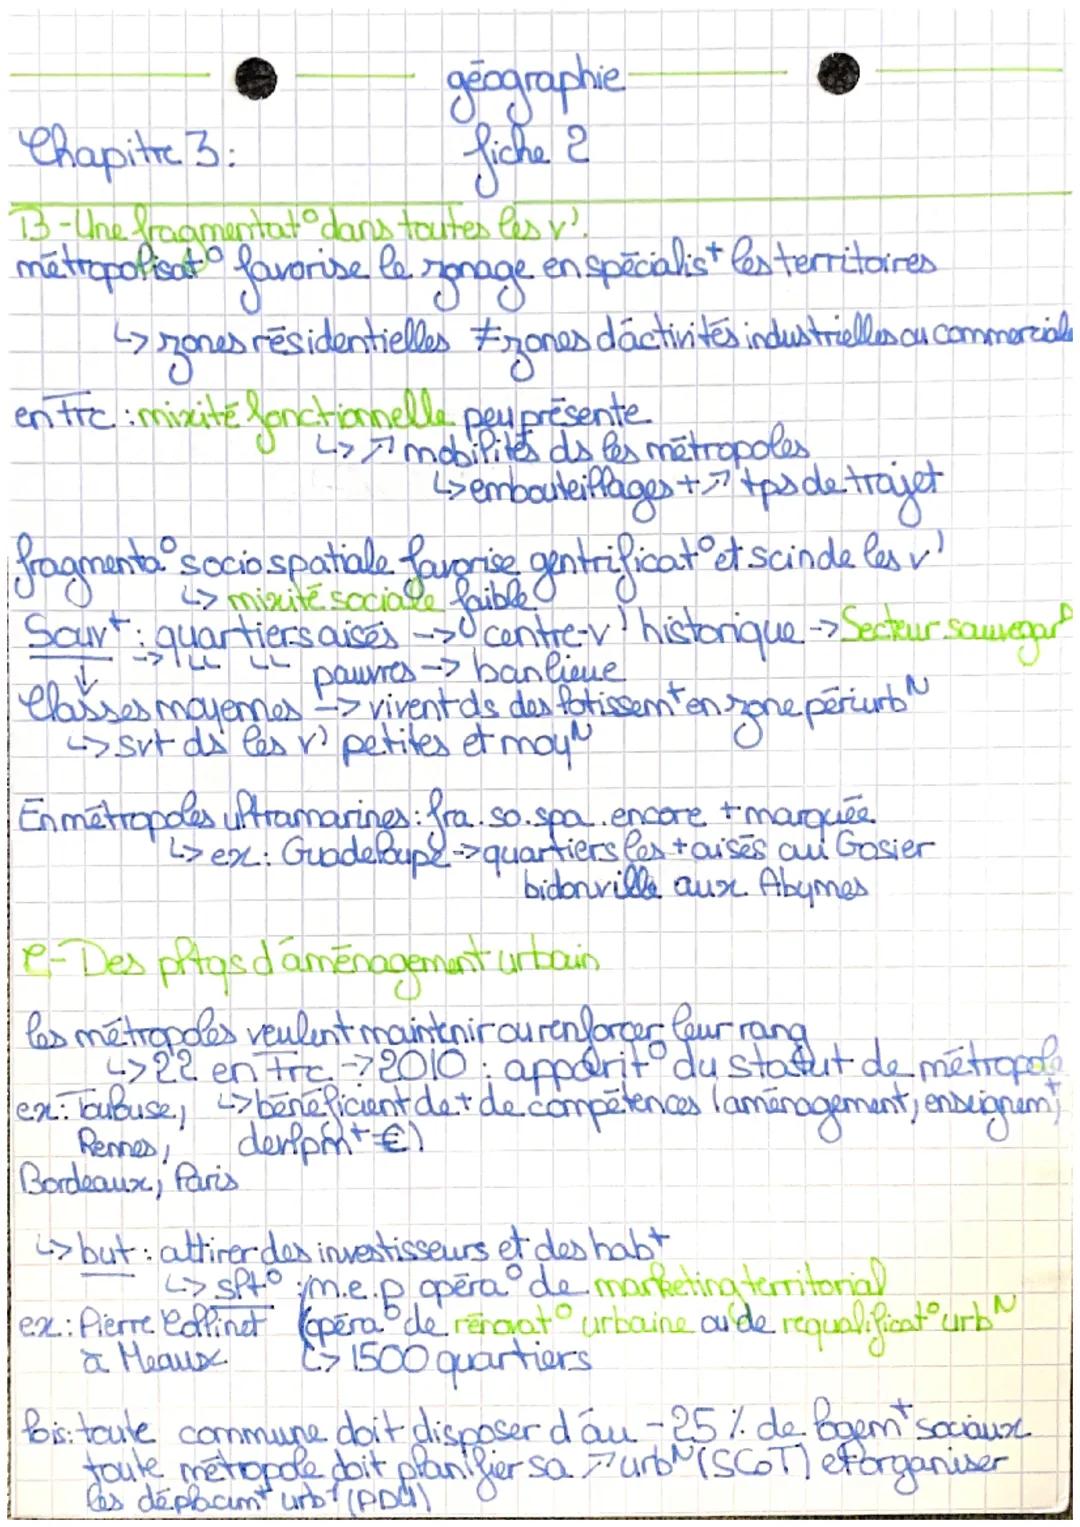 géographie
Chapitre 3: fiche 2
B-Une fragmentat° dans toutes les v'.
métropolisat° favorise le zonage en spécialis+ les territoires
↳ zones résidentielles ≠ zones d'activités industrielles ou commerciale
en Frc : mixité fonctionnelle peu présente
↳ ↗ mobilités ds les métropoles
↳ embouteillages + ↗ tps de trajet
fragmenta° socio spatiale favorise gentrificat° et scinde les v'
↳ mixité sociale faible
Souv+ : quartiers aisés -> centre-v' historique -> Secteur sauvegar
-> ււ ււ pauvres -> banlieue
Classes moyennes -> vivent ds des lotissem+ en zone périurbN
↳ srt ds les v' petites et moyN
En métropoles ultramarines : fra. so. spa. encore + marquée
↳ ex: Guadeloupe -> quartiers les + aisés au Gosier
bidonville aux Abymes
C- Des pltqs d'aménagement urbain
les métropoles veulent maintenir ou renforcer leur rang
↳ 22 en Frc -> 2010 : apparit° du statut de métropole
ex: Toulouse, ↳ bénéficient de + de compétences (aménagement, enseignem+,
Rennes, devlpm+ €)
Bordeaux, Paris
↳ but : attirer des investisseurs et des hab+
↳ slt° : m.e.p opéra° de marketing territorial
ex: Pierre Collinet (opéra° de rénovat° urbaine ou de requalificat° urbN
à Meaux ↳ 1500 quartiers
lois: toute commune doit disposer d'au - 25 % de logem+ sociaux
toute métropole doit planifier sa ↗ urbN (SCoT) et organiser
les déplacm+ urb+ (PDU)